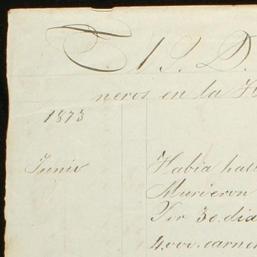 El S. D.
neros en la H
1873
Junio
Habia hab
Murieron
Por 30 dia
4.000 carne